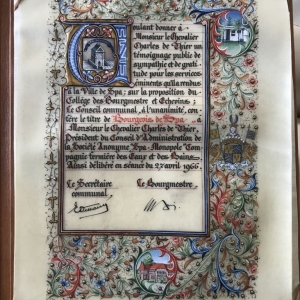 Voulant donner à
Monsieur le Chevalier
Charles de Thier un
témoignage public de
sympathie et de grati-
tude pour les services
éminents qu'il a rendus
à la Ville de Spa; sur la proposition du
Collège des Bourgmestre et Echevins;
Le Conseil communal, à l'unanimité, con-
fère le titre de Bourgeois de Spa à
Monsieur le Chevalier Charles de Thier,
Président du Conseil d'Administration de
la Société Anonyme Spa-Monopole "Com-
pagnie fermière des Eaux et des Bains"
Ainsi délibéré en séance du 2x avril 1966.
Le Secrétaire Le Bourgmestre,
communal,